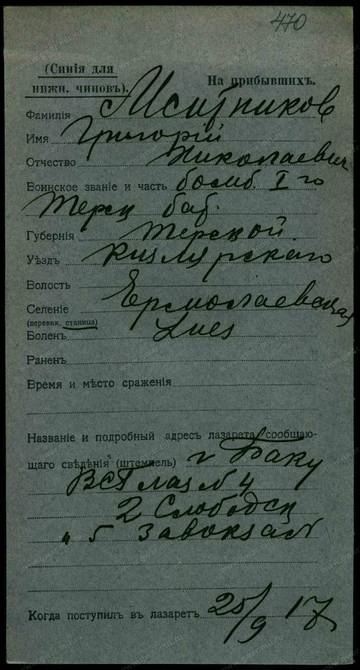 470
(Синія для
нижн. чиновъ).
На прибывшихъ.
Фамилія Мситников
Имя Григорій
Отчество Николаевич
Воинское званіе и часть бомб. I го
Терск бат.
Губернія Терской
Уѣздъ Кизлярскаго
Волость
Селеніе Ермолаевская
(деревня, станица)
Боленъ Lues
Раненъ
Время и мѣсто сраженія
Названіе и подробный адресъ лазарета, сообщаю-
щаго свѣдѣнія (штемпель) г Баку
ВСГ лаз N 4
2 Слободск
" 5 Завокзал
Когда поступилъ въ лазаретъ 25/9 17